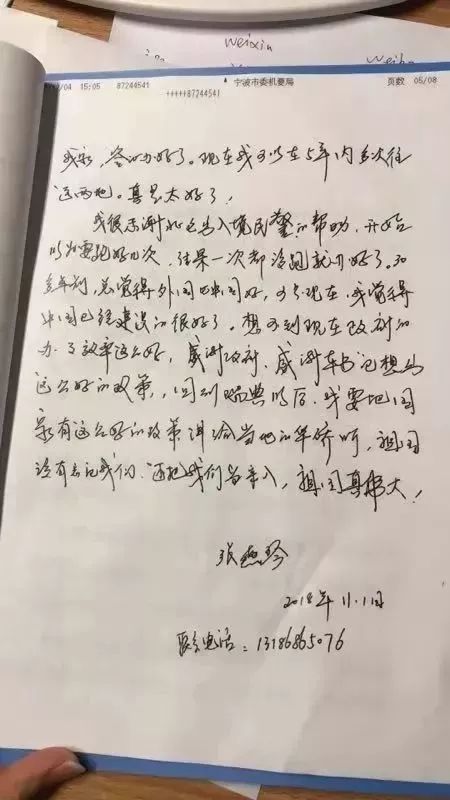 Weixin
Weibo
/04 15:05 87244541
宁波市委机要局
页数 05/08
+++++87244541
我家，签证办好了。现在我可以在5年内多次往
返两地。真是太好了！
我很感谢出入境民警的帮助，开始
以为要跑好几次，结果一次都没跑就办好了。30
多年前，总觉得外国比中国好，可是现在，我觉得
中国已经建设的很好了。想不到现在政府的
办事效率这么好，感谢政府，感谢车书记想出
这么好的政策，回到瑞典以后，我要把国
家有这么好的政策讲给当地的华侨听，祖国
没有忘记我们，还把我们当亲人，祖国真伟大！
张燕琴
2018年11.1日
联系电话：13186865076